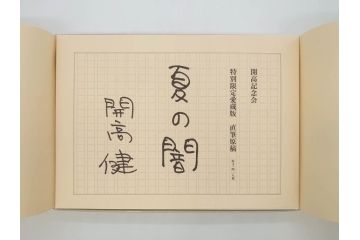 開高記念会
特別限定愛蔵版 直筆原稿
夏の闇
開高健